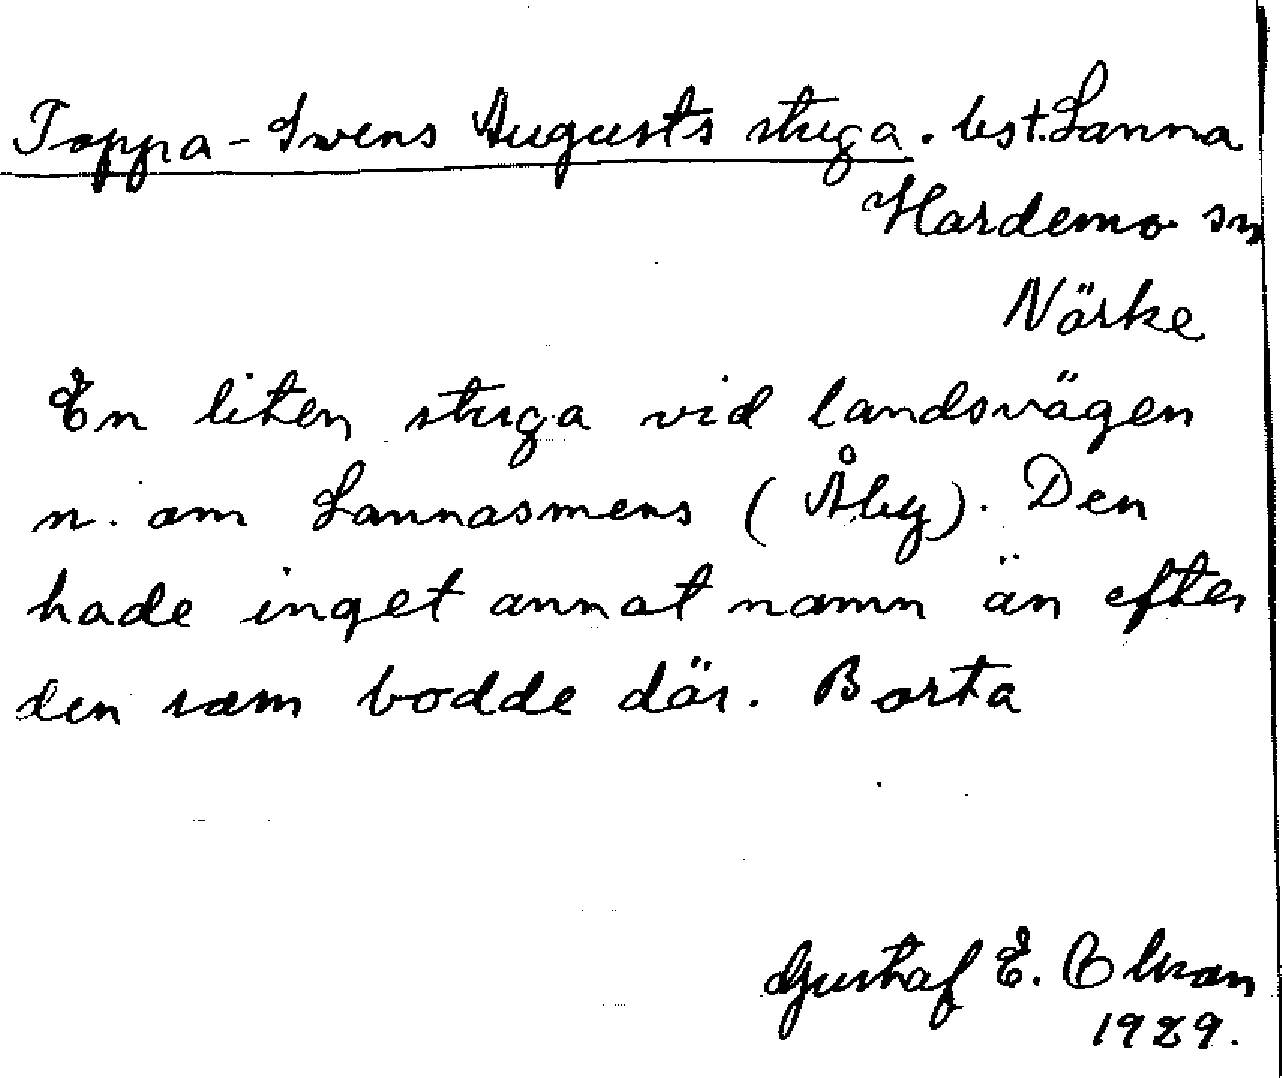 Toppa-Svens Augusts stuga. bst. Lanna
Hardemo sn
Närke
En liten stuga vid landsvägen
n. om Lannasmens (Åby). Den
hade inget annat namn än efter
den som bodde där. Borta
Gustaf E. Olsson
1929.